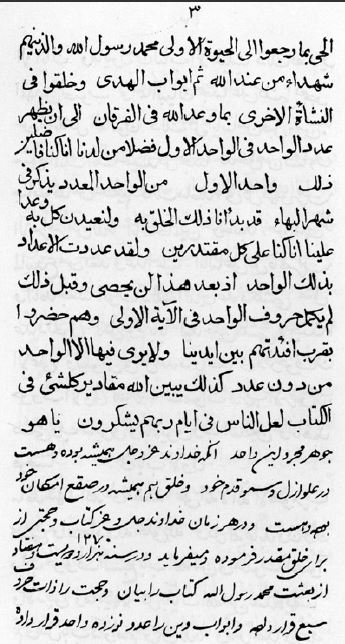 ٣
الحی بما رجعوا الی الحیوة الاولی محمد رسول الله والذینهم
شهداء من عند الله ثم ابواب الهدی وخلقوا فی
النشأة الاخری بما وعد الله فی الفرقان الی ان یظهر
عدد الواحد فی الواحد الاول فضلا من لدنا انا کنا فاضلین
ذلک واحد الاول من الواحد المعدد یذکر فی
شهر البهاء قد بدأنا ذلک الخلق به ولنعیدن کل به وعدا
علینا انا کنا علی کل مقتدرین ولقد عددت الاعداد
بذلک الواحد اذ بعد هذا لن یحصی وقبل ذلک
لم یکمل حروف الواحد فی الآیة الاولی وهم حضروا
بقرب افئدتهم بین ایدینا ولا یری فیها الا الواحد
من دون عدد کذلک یبین الله مقادیر کلشئ فی
الکتاب لعل الناس فی ایام ربهم یشکرون یا هو
جوهر مجرد این واحد انکه خداوند عز وجل همیشه بوده وهست
در علو ازل وسمو قدم خود وخلق هم همیشه در صقع امکان خود
بوده وهست ودر هر زمان خداوند جل وعز کتاب وحجتی از
برای خلق مقدر فرموده ومیفرماید ودر سنه هزار دویست وهفتاد ١٢٧٠
از بعثت محمد رسول الله کتاب را بیان وحجت را ذات حروف
سبع قرار داده وابواب دین را عدد نوزده واحد قرار داده